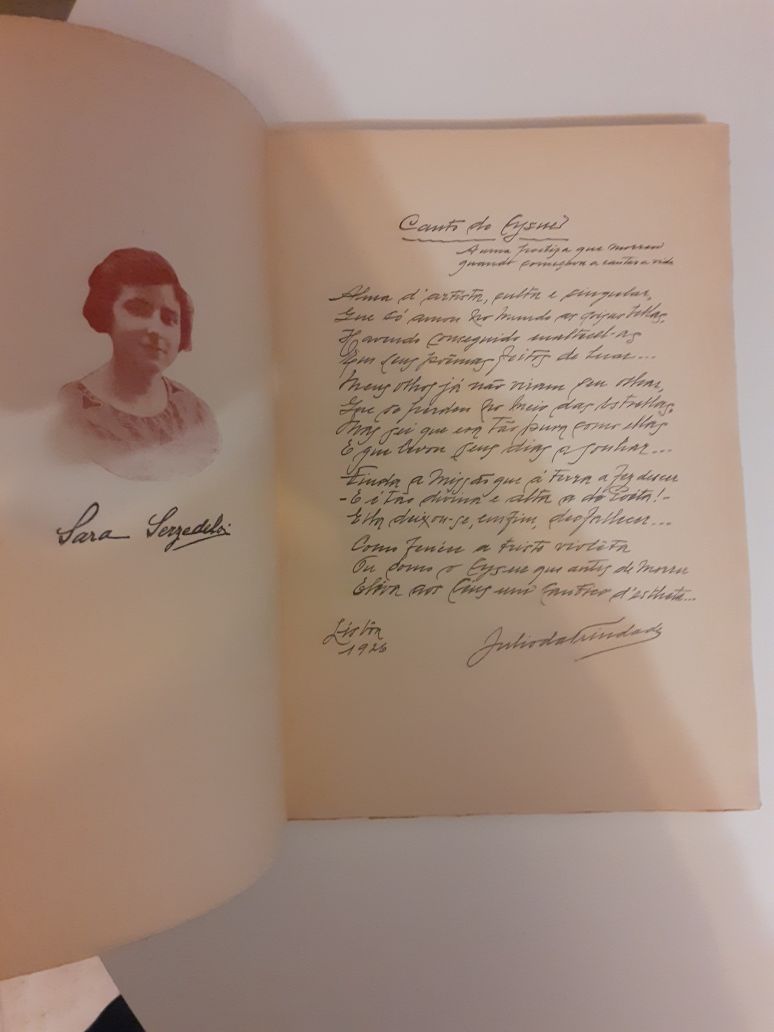 Sara Serzedelo
Canto do Cysne
A uma poetiza que morreu
quando começava a cantar a vida
Alma d'artista, culta e singular,
Que só amou no mundo as coisas bellas,
Havendo conseguido enaltecel-as
Em seus poêmas feitos de luar...
Meus olhos já não viram seu olhar,
Que se perdeu no meio das estrellas,
Mas sei que era tão pura como ellas
E que levou seus dias a sonhar...
Finda a missão que á terra a fez descer
- E é tão divina e alta a do Poeta! -
Ella deixou-se, emfim, desfallecer...
Como fenece a triste violeta
Ou como o Cysne que antes de morrer
Eleva aos Céus um Cantico d'estheta...
Lisbôa
1926
Julio da Trindade